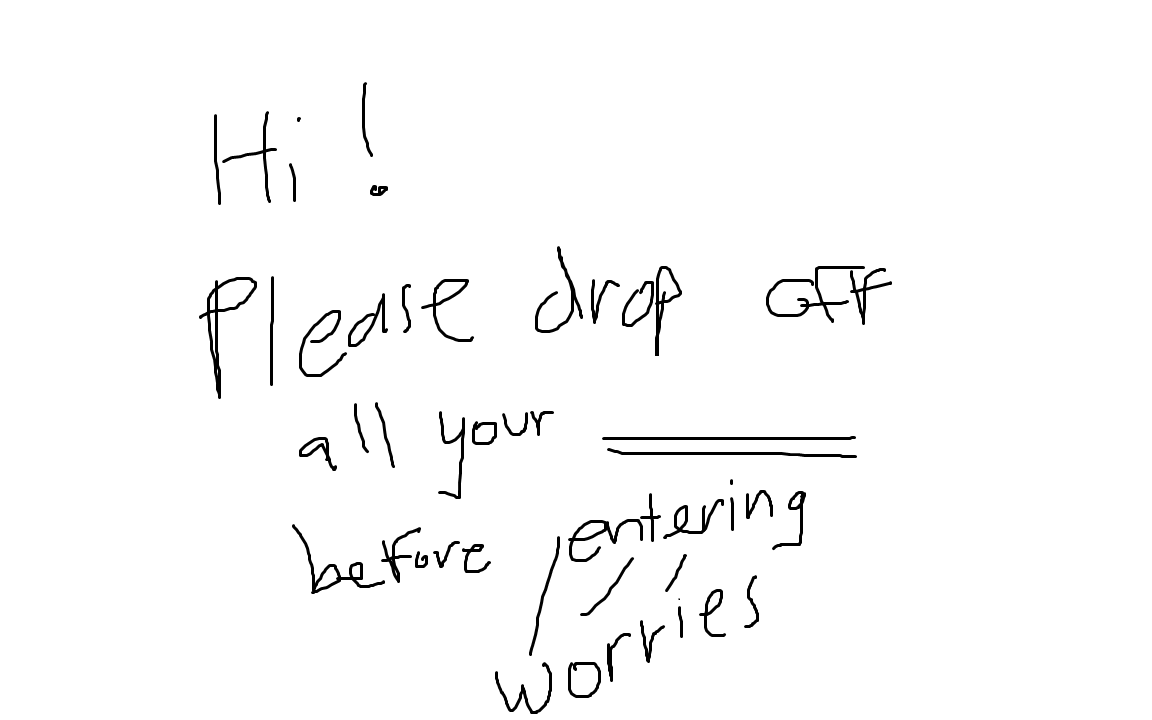 Hi!
Please drop off
all your
before entering
worries